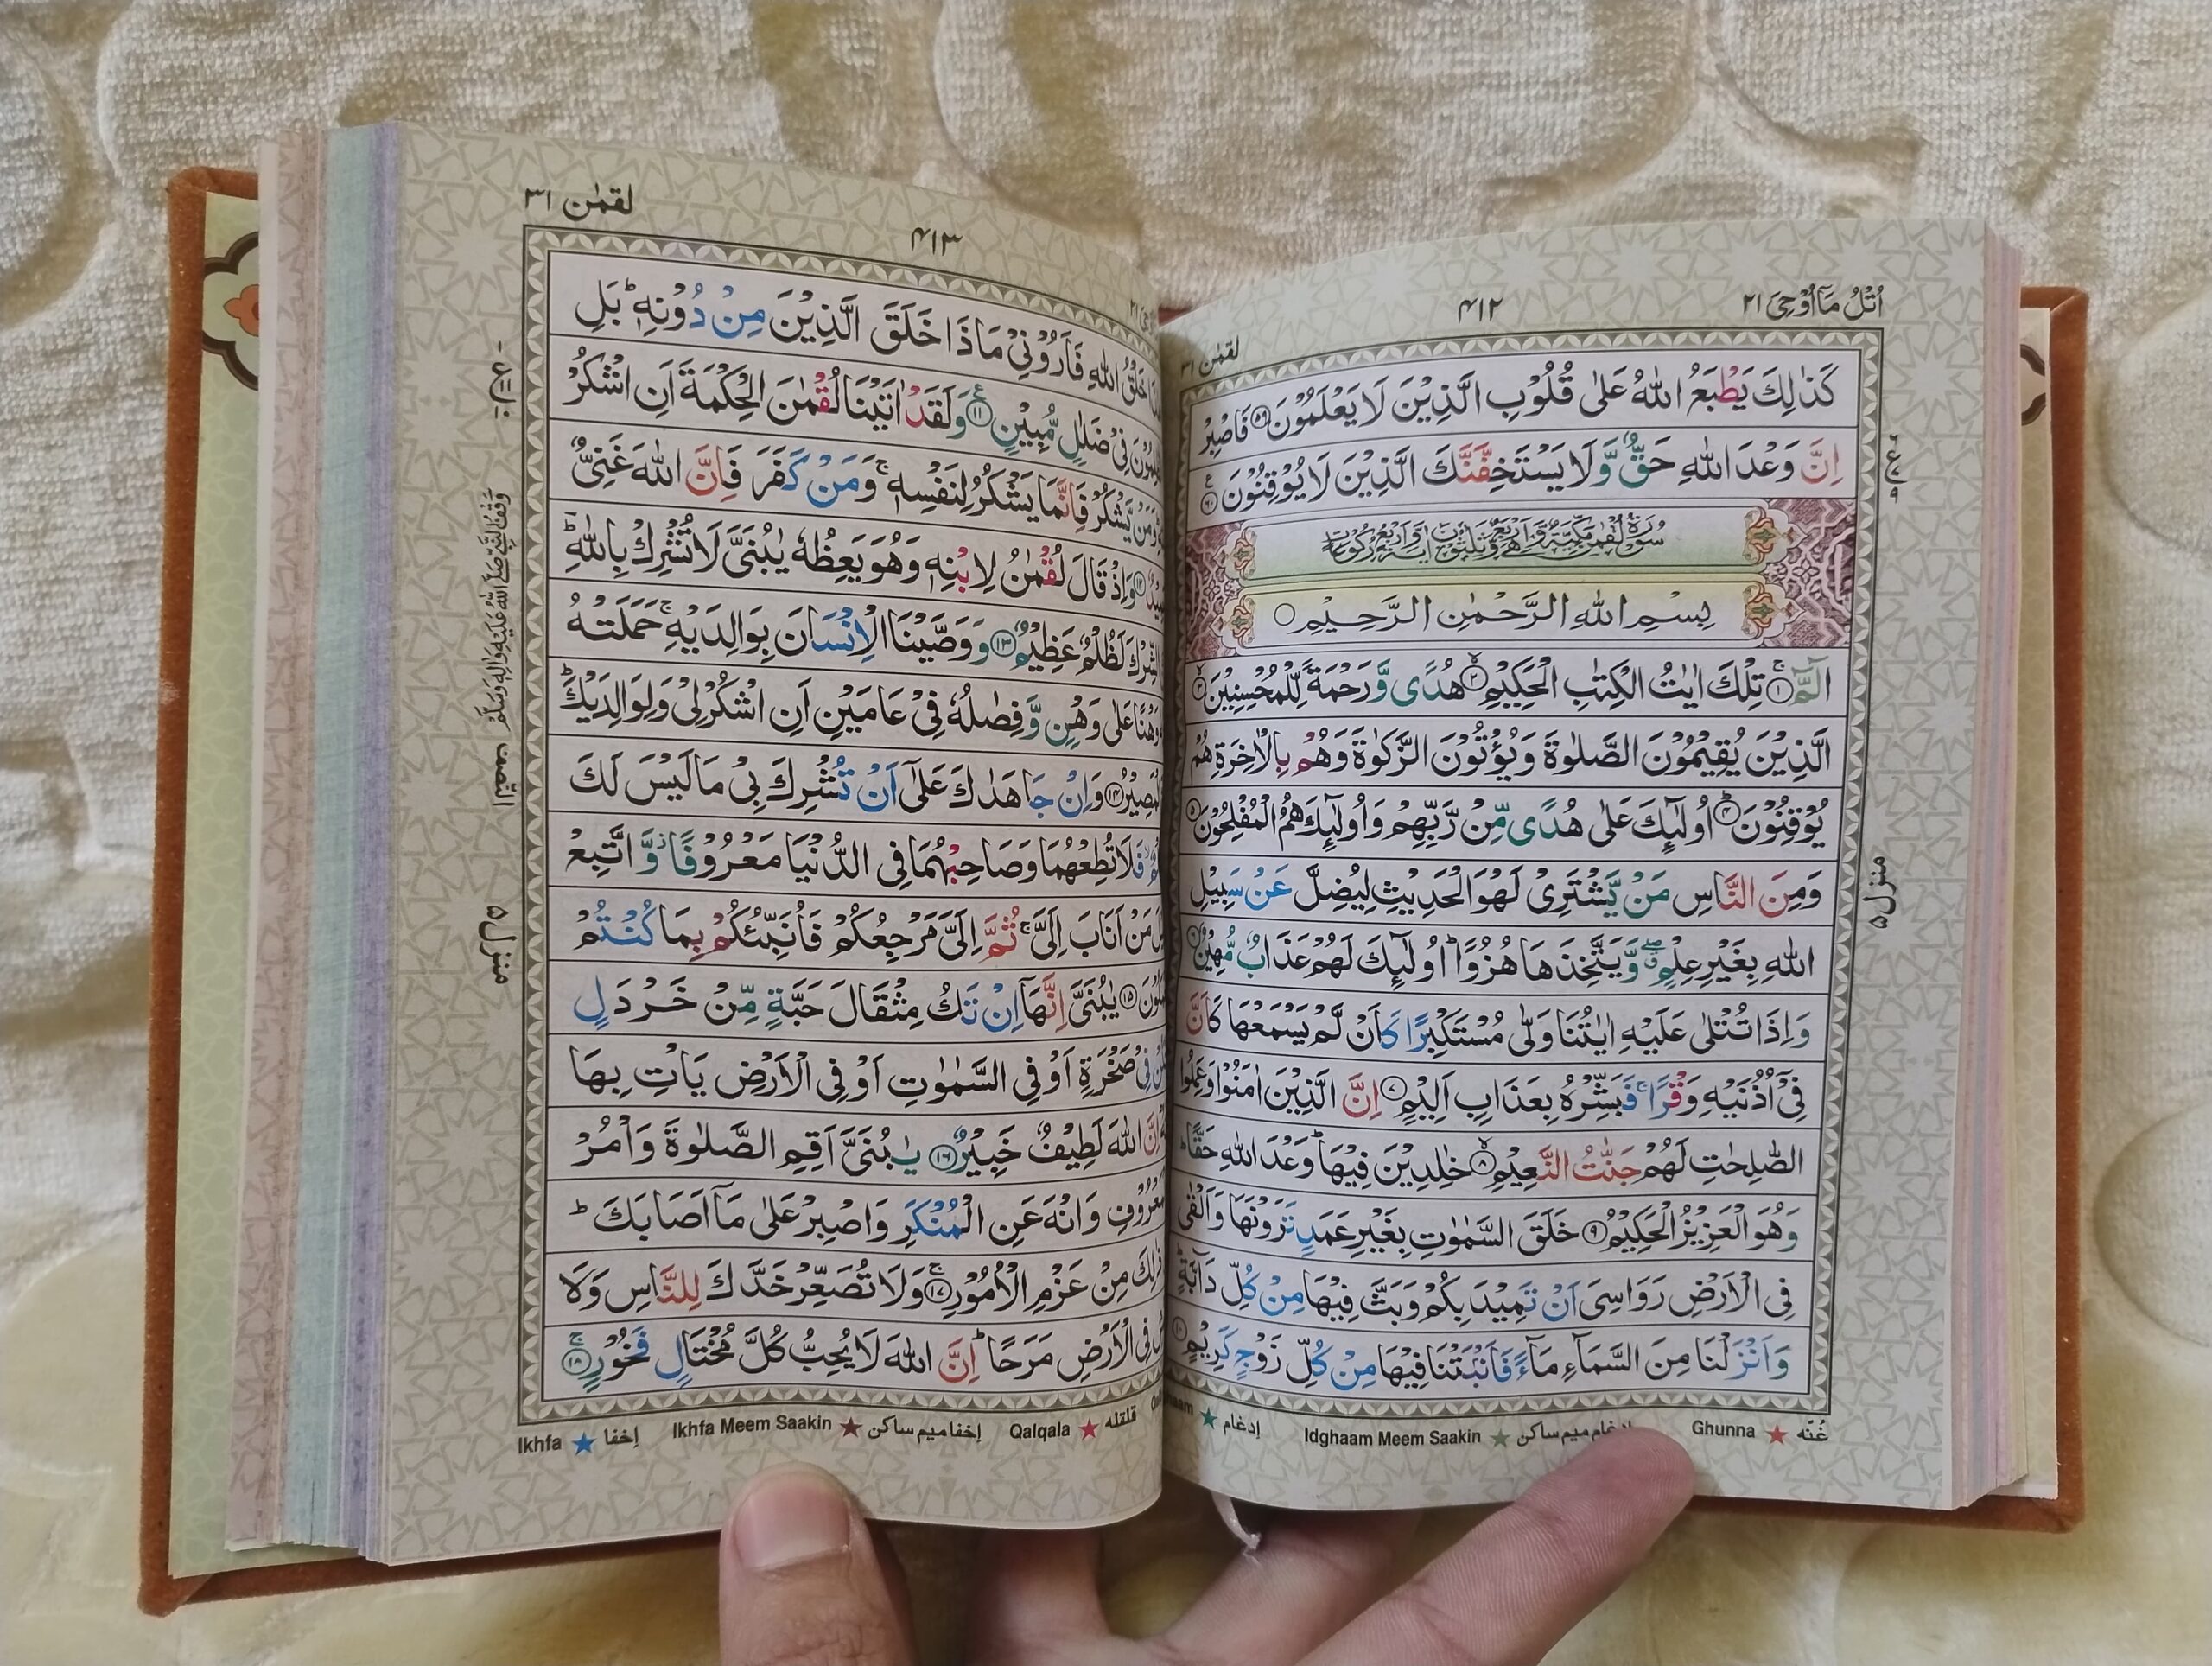 اُتْلُ مَآ اُوْحِیَ ۲۱
۴۱۲
لقمٰن ۳۱
كَذٰلِكَ يَطْبَعُ اللّٰهُ عَلٰى قُلُوْبِ الَّذِيْنَ لَا يَعْلَمُوْنَ ۵۹ فَاصْبِرْ
اِنَّ وَعْدَ اللّٰهِ حَقٌّ وَّلَا يَسْتَخِفَّنَّكَ الَّذِيْنَ لَا يُوْقِنُوْنَ ۶۰
سُوْرَةُ لُقْمٰنَ مَكِّيَّةٌ وَّهِيَ اَرْبَعٌ وَّثَلٰثُوْنَ اٰيَةً وَّاَرْبَعُ رُكُوْعَاتٍ
بِسْمِ اللّٰهِ الرَّحْمٰنِ الرَّحِيْمِ
الٓمّٓ ۱ تِلْكَ اٰيٰتُ الْكِتٰبِ الْحَكِيْمِ ۲ هُدًى وَّرَحْمَةً لِّلْمُحْسِنِيْنَ ۳
الَّذِيْنَ يُقِيْمُوْنَ الصَّلٰوةَ وَيُؤْتُوْنَ الزَّكٰوةَ وَهُمْ بِالْاٰخِرَةِ هُمْ
يُوْقِنُوْنَ ۴ اُولٰٓئِكَ عَلٰى هُدًى مِّنْ رَّبِّهِمْ وَاُولٰٓئِكَ هُمُ الْمُفْلِحُوْنَ ۵
وَمِنَ النَّاسِ مَنْ يَّشْتَرِيْ لَهْوَ الْحَدِيْثِ لِيُضِلَّ عَنْ سَبِيْلِ
اللّٰهِ بِغَيْرِ عِلْمٍ وَّيَتَّخِذَهَا هُزُوًا ؕ اُولٰٓئِكَ لَهُمْ عَذَابٌ مُّهِيْنٌ ۶
وَاِذَا تُتْلٰى عَلَيْهِ اٰيٰتُنَا وَلّٰى مُسْتَكْبِرًا كَاَنْ لَّمْ يَسْمَعْهَا كَاَنَّ
فِيْٓ اُذُنَيْهِ وَقْرًا ۚ فَبَشِّرْهُ بِعَذَابٍ اَلِيْمٍ ۷ اِنَّ الَّذِيْنَ اٰمَنُوْا وَعَمِلُوا
الصّٰلِحٰتِ لَهُمْ جَنّٰتُ النَّعِيْمِ ۸ خٰلِدِيْنَ فِيْهَا ؕ وَعْدَ اللّٰهِ حَقًّا ؕ
وَهُوَ الْعَزِيْزُ الْحَكِيْمُ ۹ خَلَقَ السَّمٰوٰتِ بِغَيْرِ عَمَدٍ تَرَوْنَهَا وَاَلْقٰى
فِي الْاَرْضِ رَوَاسِيَ اَنْ تَمِيْدَ بِكُمْ وَبَثَّ فِيْهَا مِنْ كُلِّ دَآبَّةٍ ؕ
وَاَنْزَلْنَا مِنَ السَّمَآءِ مَآءً فَاَنْۢبَتْنَا فِيْهَا مِنْ كُلِّ زَوْجٍ كَرِيْمٍ ۱۰
منزل ۵
غُنّه ★ Ghunna ادغام میم ساکن ★ Idghaam Meem Saakin إدغام ★
لقمٰن ۳۱
۴۱۳
خَلْقُ اللّٰهِ فَاَرُوْنِيْ مَاذَا خَلَقَ الَّذِيْنَ مِنْ دُوْنِهٖ ؕ بَلِ
فِيْ ضَلٰلٍ مُّبِيْنٍ ۱۱ وَلَقَدْ اٰتَيْنَا لُقْمٰنَ الْحِكْمَةَ اَنِ اشْكُرْ
وَمَنْ يَّشْكُرْ فَاِنَّمَا يَشْكُرُ لِنَفْسِهٖ ۚ وَمَنْ كَفَرَ فَاِنَّ اللّٰهَ غَنِيٌّ
۱۲ وَاِذْ قَالَ لُقْمٰنُ لِابْنِهٖ وَهُوَ يَعِظُهٗ يٰبُنَيَّ لَا تُشْرِكْ بِاللّٰهِ ؕ
الشِّرْكَ لَظُلْمٌ عَظِيْمٌ ۱۳ وَوَصَّيْنَا الْاِنْسَانَ بِوَالِدَيْهِ ۚ حَمَلَتْهُ
وَهْنًا عَلٰى وَهْنٍ وَّفِصٰلُهٗ فِيْ عَامَيْنِ اَنِ اشْكُرْ لِيْ وَلِوَالِدَيْكَ ؕ
الْمَصِيْرُ ۱۴ وَاِنْ جَاهَدٰكَ عَلٰٓى اَنْ تُشْرِكَ بِيْ مَا لَيْسَ لَكَ
فَلَا تُطِعْهُمَا وَصَاحِبْهُمَا فِي الدُّنْيَا مَعْرُوْفًا ۖ وَّاتَّبِعْ
مَنْ اَنَابَ اِلَيَّ ۚ ثُمَّ اِلَيَّ مَرْجِعُكُمْ فَاُنَبِّئُكُمْ بِمَا كُنْتُمْ
۱۵ يٰبُنَيَّ اِنَّهَآ اِنْ تَكُ مِثْقَالَ حَبَّةٍ مِّنْ خَرْدَلٍ
فِيْ صَخْرَةٍ اَوْ فِي السَّمٰوٰتِ اَوْ فِي الْاَرْضِ يَاْتِ بِهَا
اِنَّ اللّٰهَ لَطِيْفٌ خَبِيْرٌ ۱۶ يٰبُنَيَّ اَقِمِ الصَّلٰوةَ وَاْمُرْ
وَانْهَ عَنِ الْمُنْكَرِ وَاصْبِرْ عَلٰى مَآ اَصَابَكَ ؕ
ذٰلِكَ مِنْ عَزْمِ الْاُمُوْرِ ۱۷ وَلَا تُصَعِّرْ خَدَّكَ لِلنَّاسِ وَلَا
فِي الْاَرْضِ مَرَحًا ؕ اِنَّ اللّٰهَ لَا يُحِبُّ كُلَّ مُخْتَالٍ فَخُوْرٍ ۱۸
منزل ۵
قلقله ★ Qalqala إخفا میم ساکن ★ Ikhfa Meem Saakin إخفا ★ Ikhfa